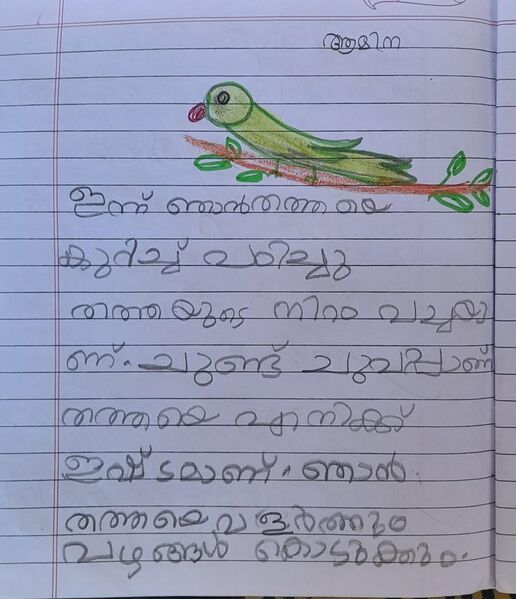 ആമിന
ഇന്ന് ഞാൻതത്തയെ
കുറിച്ച് പഠിച്ചു
തത്തയുടെ നിറം പച്ചയാ
ണ്. ചുണ്ട് ചുവപ്പാണ്
തത്തയെ എനിക്ക്
ഇഷ്ടമാണ്. ഞാൻ
തത്തയെവളർത്തും
പഴങ്ങൾ കൊടുക്കും.